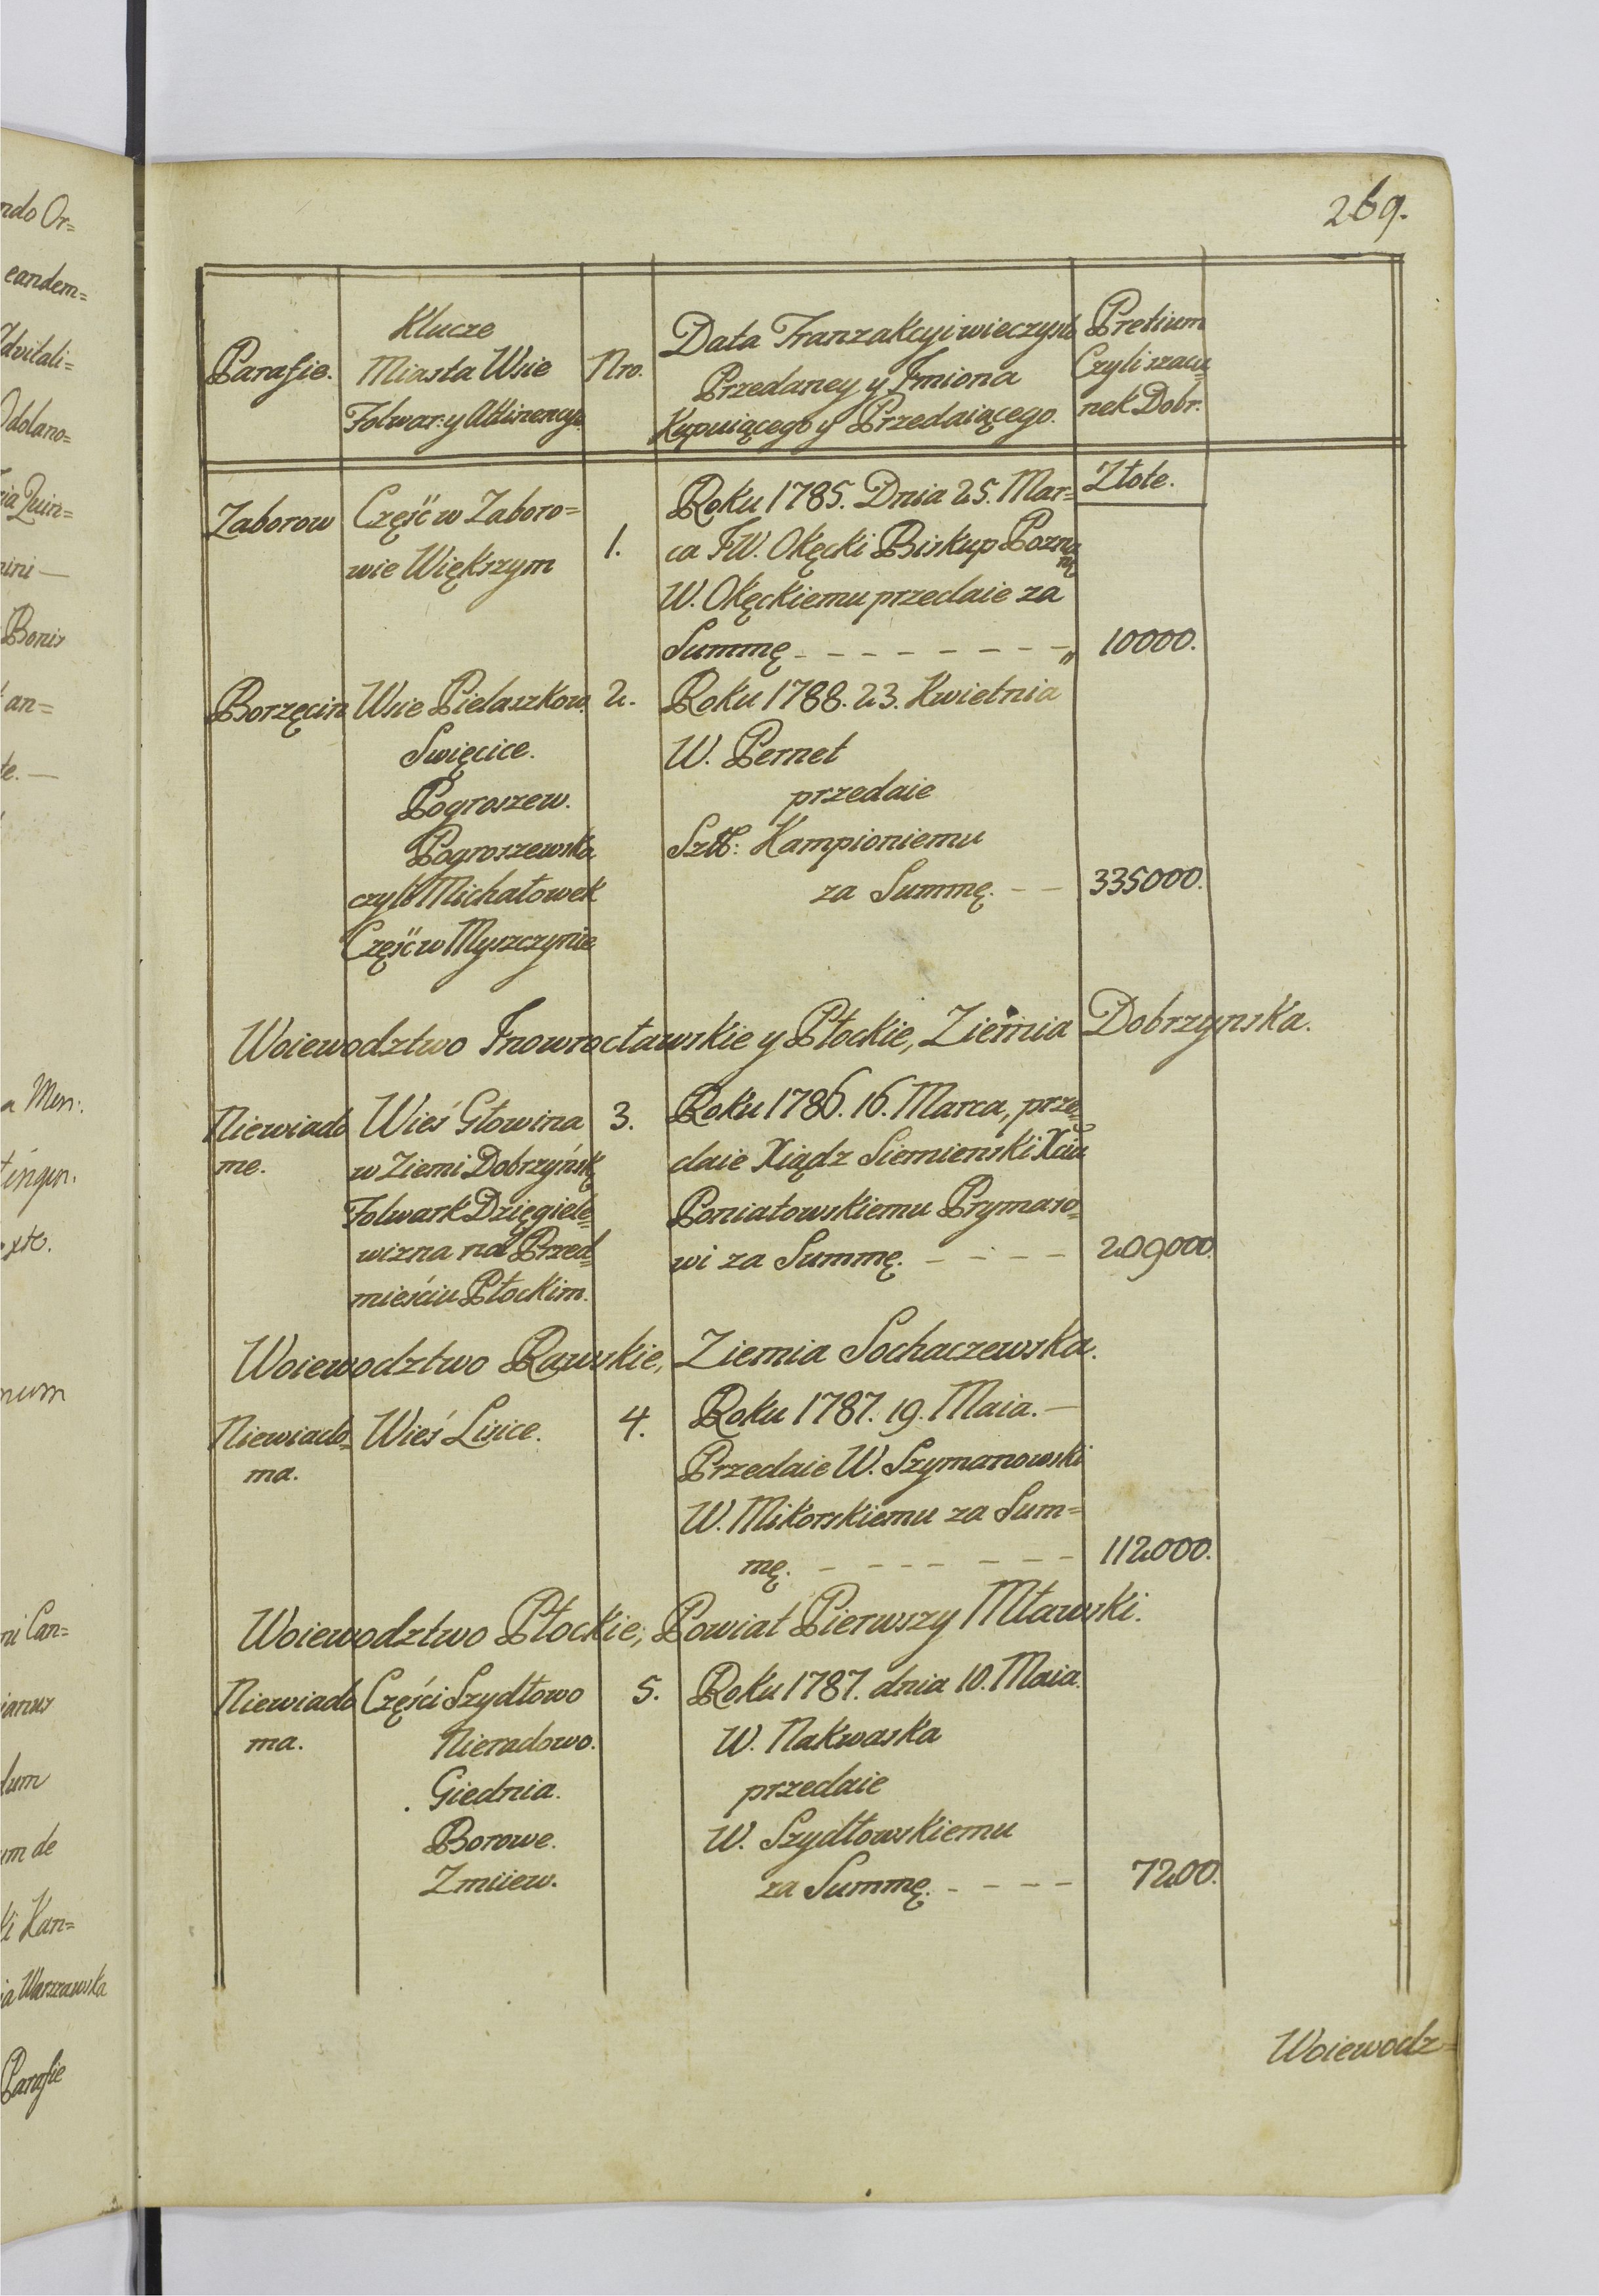 ndo Or=
eandem=
Advitali=
Odolano=
Quin=
mini —
Bonis
an=
te. —
a Men:
tingen.
exte.
num
ni Can=
ianus
dum
um de
ki Kan=
ia Warszawska
Parafie
269.
Parafie.
Klucze
Miasta Wsie
Folwar: y Attinencye.
Nro.
Data Tranzakcyi wieczysto
Przedaney y Imiona
Kupuiącego y Przedaiącego.
Pretium
Czyli szacu=
nek Dobr.
Złote.
Zaborow
Część w Zaboro=
wie Większym
1.
Roku 1785. Dnia 25. Mar=
ca JW. Okęcki Biskup Pozna
W. Okęckiemu przedaie za
Summę - - - - - - - - „
10000.
Borzęcin
Wsie Pielaszkow.
Swięcice.
Pogroszew.
Pogroszewska
czyli Michałowek
Część w Myszczynie
2.
Roku 1788. 23. Kwietnia
W. Pernet
przedaie
Sztt: Kampioniemu
za Summę. - -
335000.
Woiewodztwo Inowrocławskie y Płockie, Ziemia Dobrzynska.
Niewiado
me.
Wieś Głowina
w Ziemi Dobrzyńsk
Folwark Dzięgiele=
wizna na Przed=
mieściu Płockim.
3.
Roku 1786. 16. Marca, prze=
daie Xiądz Siemienski Xciu
Poniatowskiemu Prymaso=
wi za Summę. - - - -
209000.
Woiewodztwo Rawskie, Ziemia Sochaczewska.
Niewiado=
ma.
Wieś Lisice.
4.
Roku 1787. 19. Maia. —
Przedaie W. Szymanowski
W. Mikorskiemu za Sum=
mę. - - - - - - -
112000.
Woiewodztwo Płockie; Powiat Pierwszy Mławski.
Niewiado
ma.
Części Szydłowo
Nieradowo.
Giednia.
Borowe.
Zmiiew.
5.
Roku 1787. dnia 10. Maia.
W. Nakwaska
przedaie
W. Szydłowskiemu
za Summę. - - - -
7200.
Woiewodz=